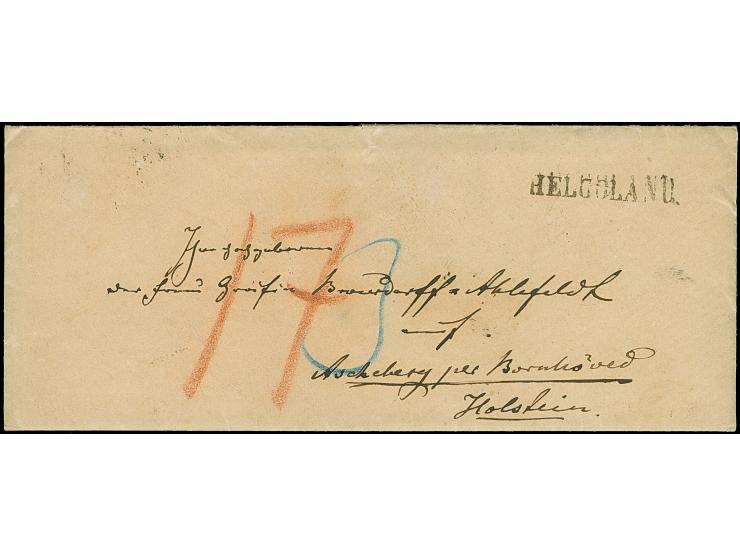 HELGOLAND.
Ihro hochgeboren
der Frau Gräfin Brockdorff-Ahlefeldt
auf
Ascheberg per Bornhöved
Holstein.
17